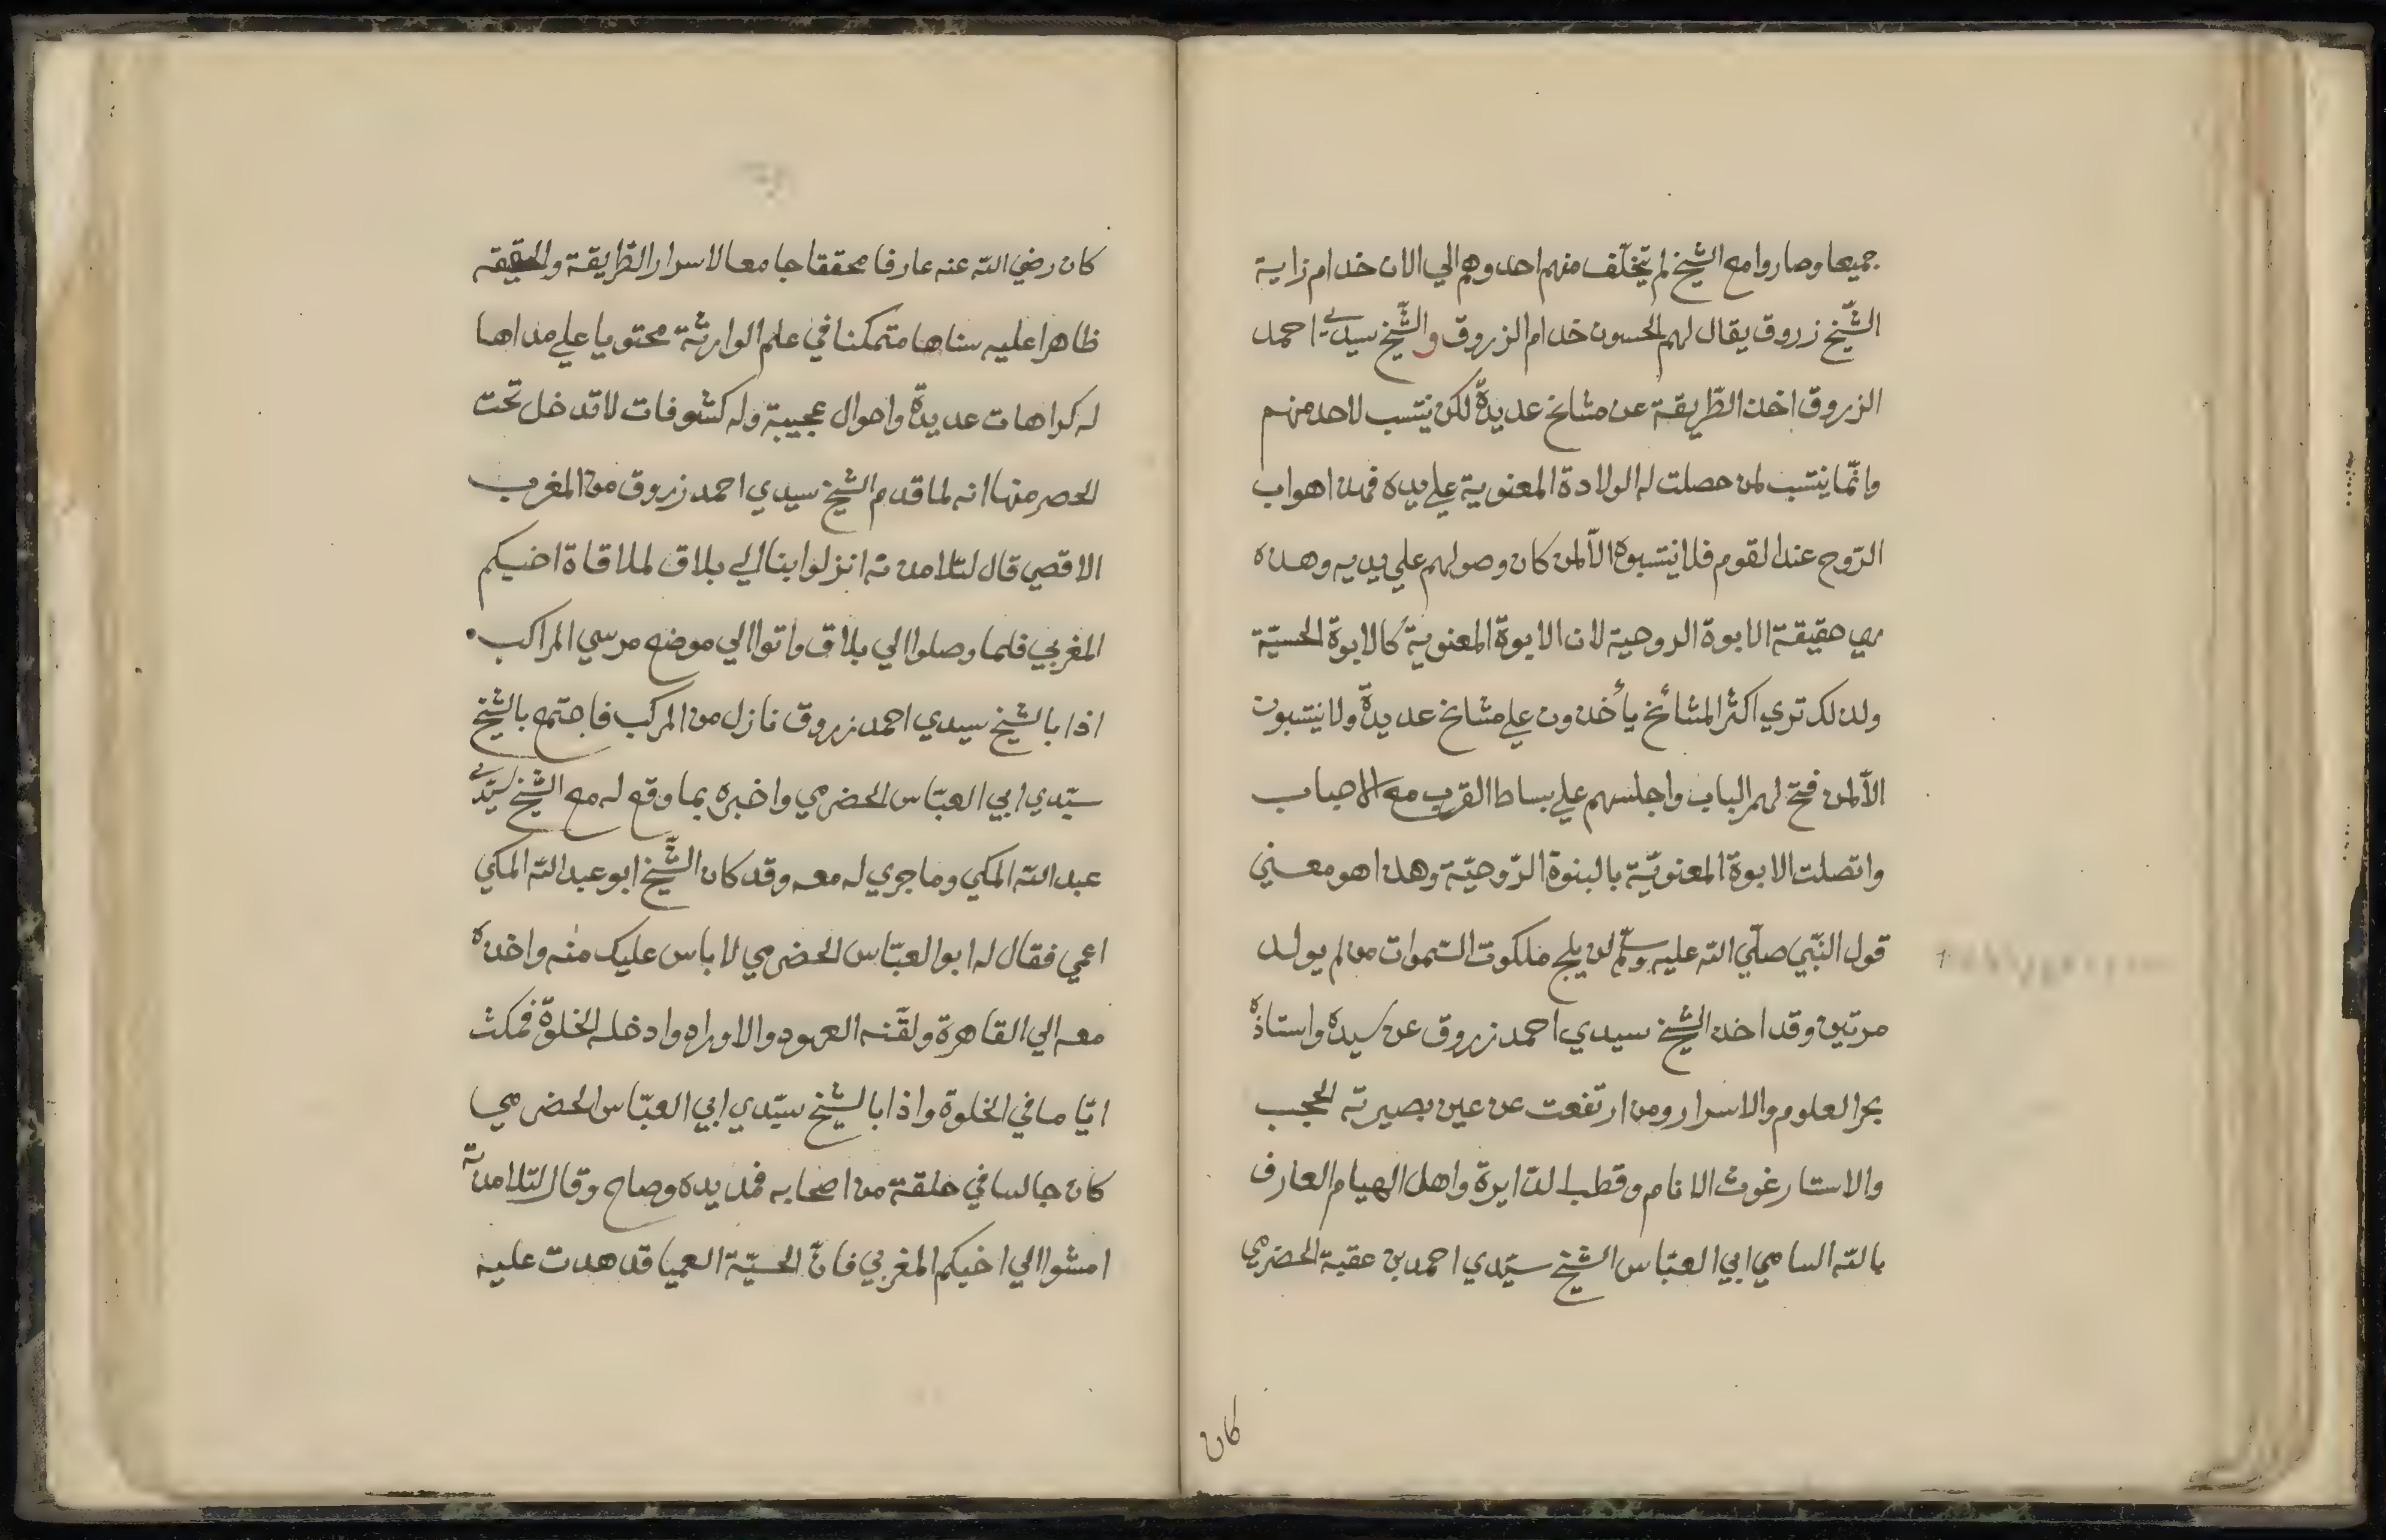 جميعا وصاروا مع الشيخ لم يتخلّف منهم احد وهم الي الان خدام زاية
الشّيخ زروق يقال لهم الحسون خدام الزروق والشّيخ سيدي احمد
الزروق اخذ الطّريقة عن مشائخ عديدة لكن ينتسب لاحد منهم
وانّما ينتسب لمن حصلت له الولادة المعنوية علي يده فهذا هواب
الرّوح عند القوم فلا ينتسبوه الّا لمن كان وصولهم علي يديه وهذه
هي حقيقة الابوة الروحية لان الابوة المعنوية كالابوة الحسيّة
ولذلك تري اكثر المشائخ يأخذون علي مشائخ عديدة ولا ينتسبون
الّا لمن فتح لهم الباب واجلسهم علي بساط القرب مع الاحباب
واتصلت الابوة المعنويّة بالبنوة الرّوحيّة وهذا هو معني
قول النّبي صلّي الله عليه وسلّم لن يلج ملكوت السّموات من لم يولد
مرتين وقد اخذ الشيخ سيدي احمد زروق عن سيده واستاذه
بحر العلوم والاسرار ومن ارتفعت عن عين بصيرته الحجب
والاستار غوث الانام وقطب الدّايرة واهل الهيام العارف
بالله السامي ابي العبّاس الشيخ سيّدي احمد بن عقبة الحضرمي
كان
كان رضي الله عنه عارفا محققا جامعا لاسرار الطّريقة والحقيقه
ظاهرا عليه سناها متمكنا في علم الوارثة محتويا علي مداها
له كراهات عديدة واحوال عجيبة وله كشوفات لا تدخل تحت
الحصر منها انه لما قدم الشيخ سيدي احمد زروق من المغرب
الاقصي قال لتلامذته انزلوا بنا الي بلاق لملاقاة اخيكم
المغربي فلما وصلوا الي بلاق واتوا الي موضع مرسي المراكب
اذا بالشيخ سيدي احمد زروق نازل من المركب فاجتمع بالشيخ
سيّدي ابي العبّاس الحضرمي واخبره بما وقع له مع الشيخ سيّدي
عبد الله المكي وما جري له معه وقد كان الشّيخ ابو عبد الله المكي
اعمي فقال له ابو العبّاس الحضرمي لا باس عليك منه واخذه
معه الي القاهرة ولقّنه العهود والاوراد وادخله الخلوة فمكث
ايّاما في الخلوة واذا بالشيخ سيّدي ابي العبّاس الحضرمي
كان جالسا في حلقة من اصحابه فمد يده وصاح وقال لتلامذته
امشوا الي اخيكم المغربي فانّ الحسيّة العميا قد هدت عليه